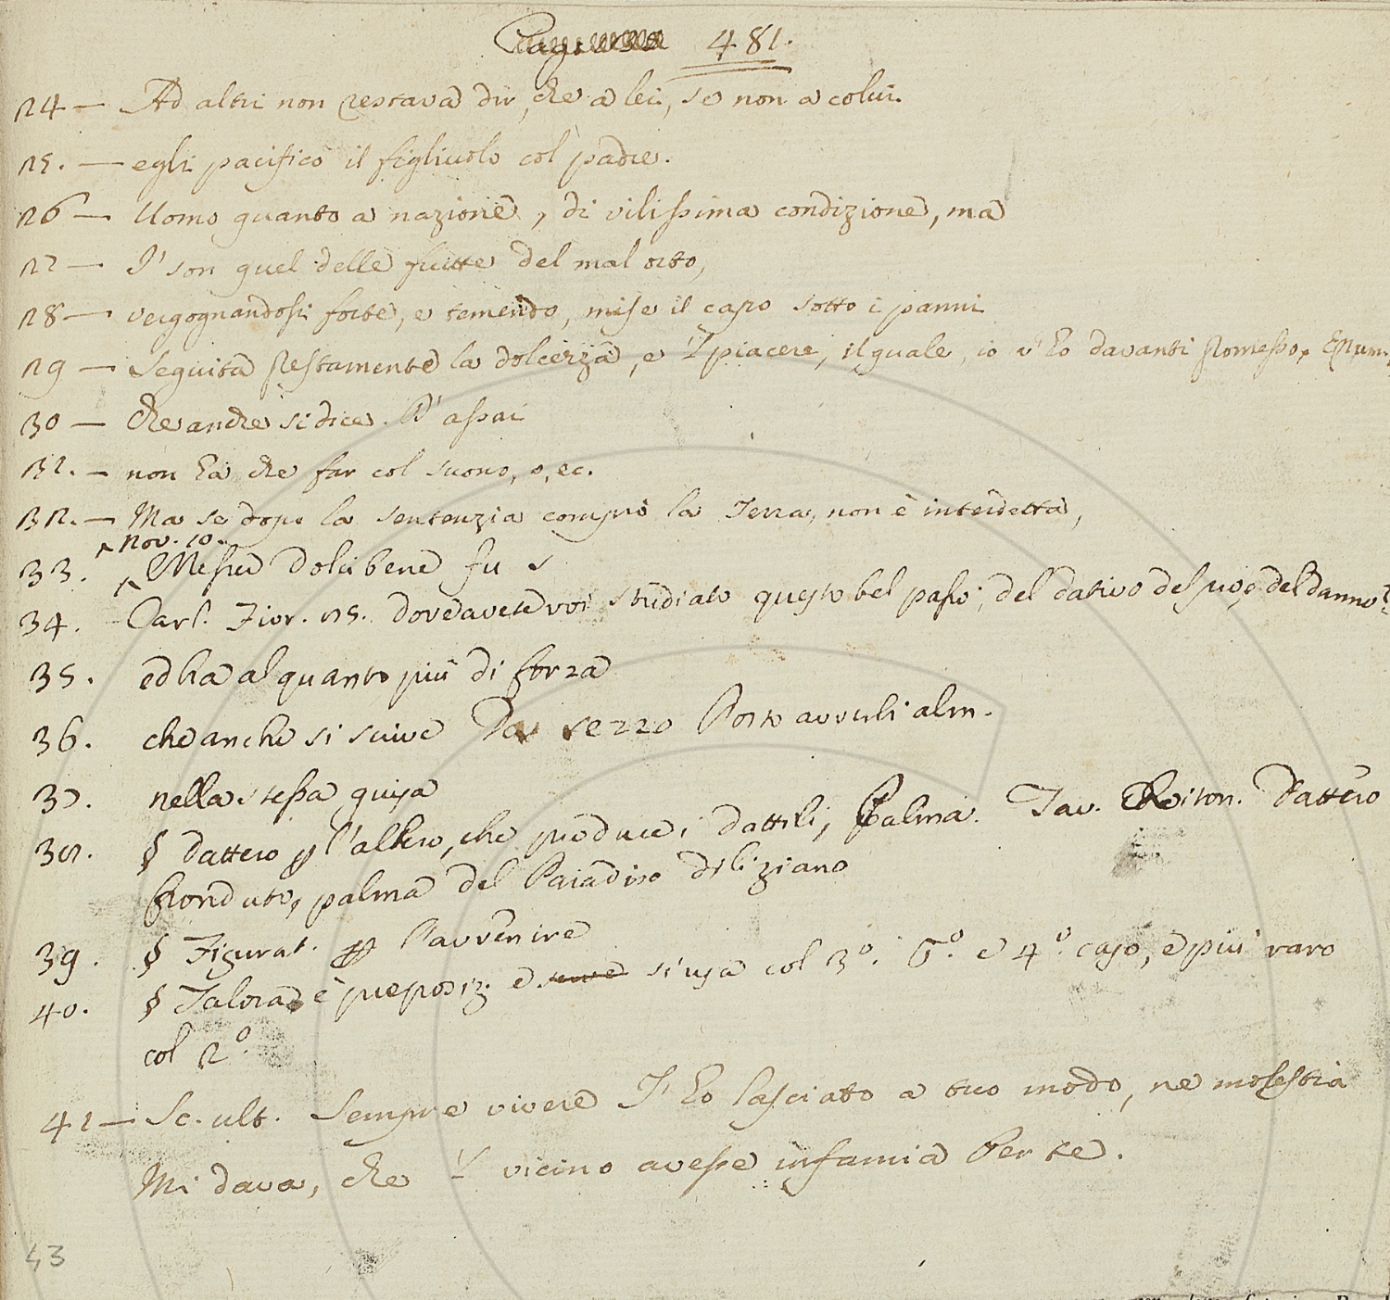 Pag. 481.
24 — Ad altri non restava dir, che a lei, se non a colui.
25. — egli pacificò il figliuolo col padre.
26 — Uomo quanto a nazione, di vilissima condizione, ma
27 — I' son quel delle frutte del mal orto,
28 — vergognandosi forte, e temendo, mise il capo sotto i panni
29 — Seguita prestamente la dolcezza, e 'l piacere, il quale io v' ho davanti promesso,
30 — che anche si dice. D' assai
31. — non ha che far col suono, o, ec.
32. — Ma se dopo la sentenzia comprò la Terra, non è interdetta,
^ nov. 10.
33. ^ Messer Dolcibene fu s
34. Carl. Fior. 25. dove avete voi studiato questo bel passo, del dativo del pro, e del danno?
35. ed ha alquanto più di forza
36. che anche si scrive Da sezzo Posto avverbialm.
37. nella stessa guisa
38. § dattero p l'albero, che produce i dattili, Palma. Tav. Ditton. Dattero
fronduto, palma del Paradiso diliziano
39. § Figurat. p Pavvenire
40. § Talora è preposiz. e serve si usa col 3.º 6.º e 4.º caso, e più raro
col 2.º
41 — Sc. ult. Sempre vivere I' ho lasciato a tuo modo, ne molestia
Mi dava, che 'l vicino avesse infamia Per te.
43